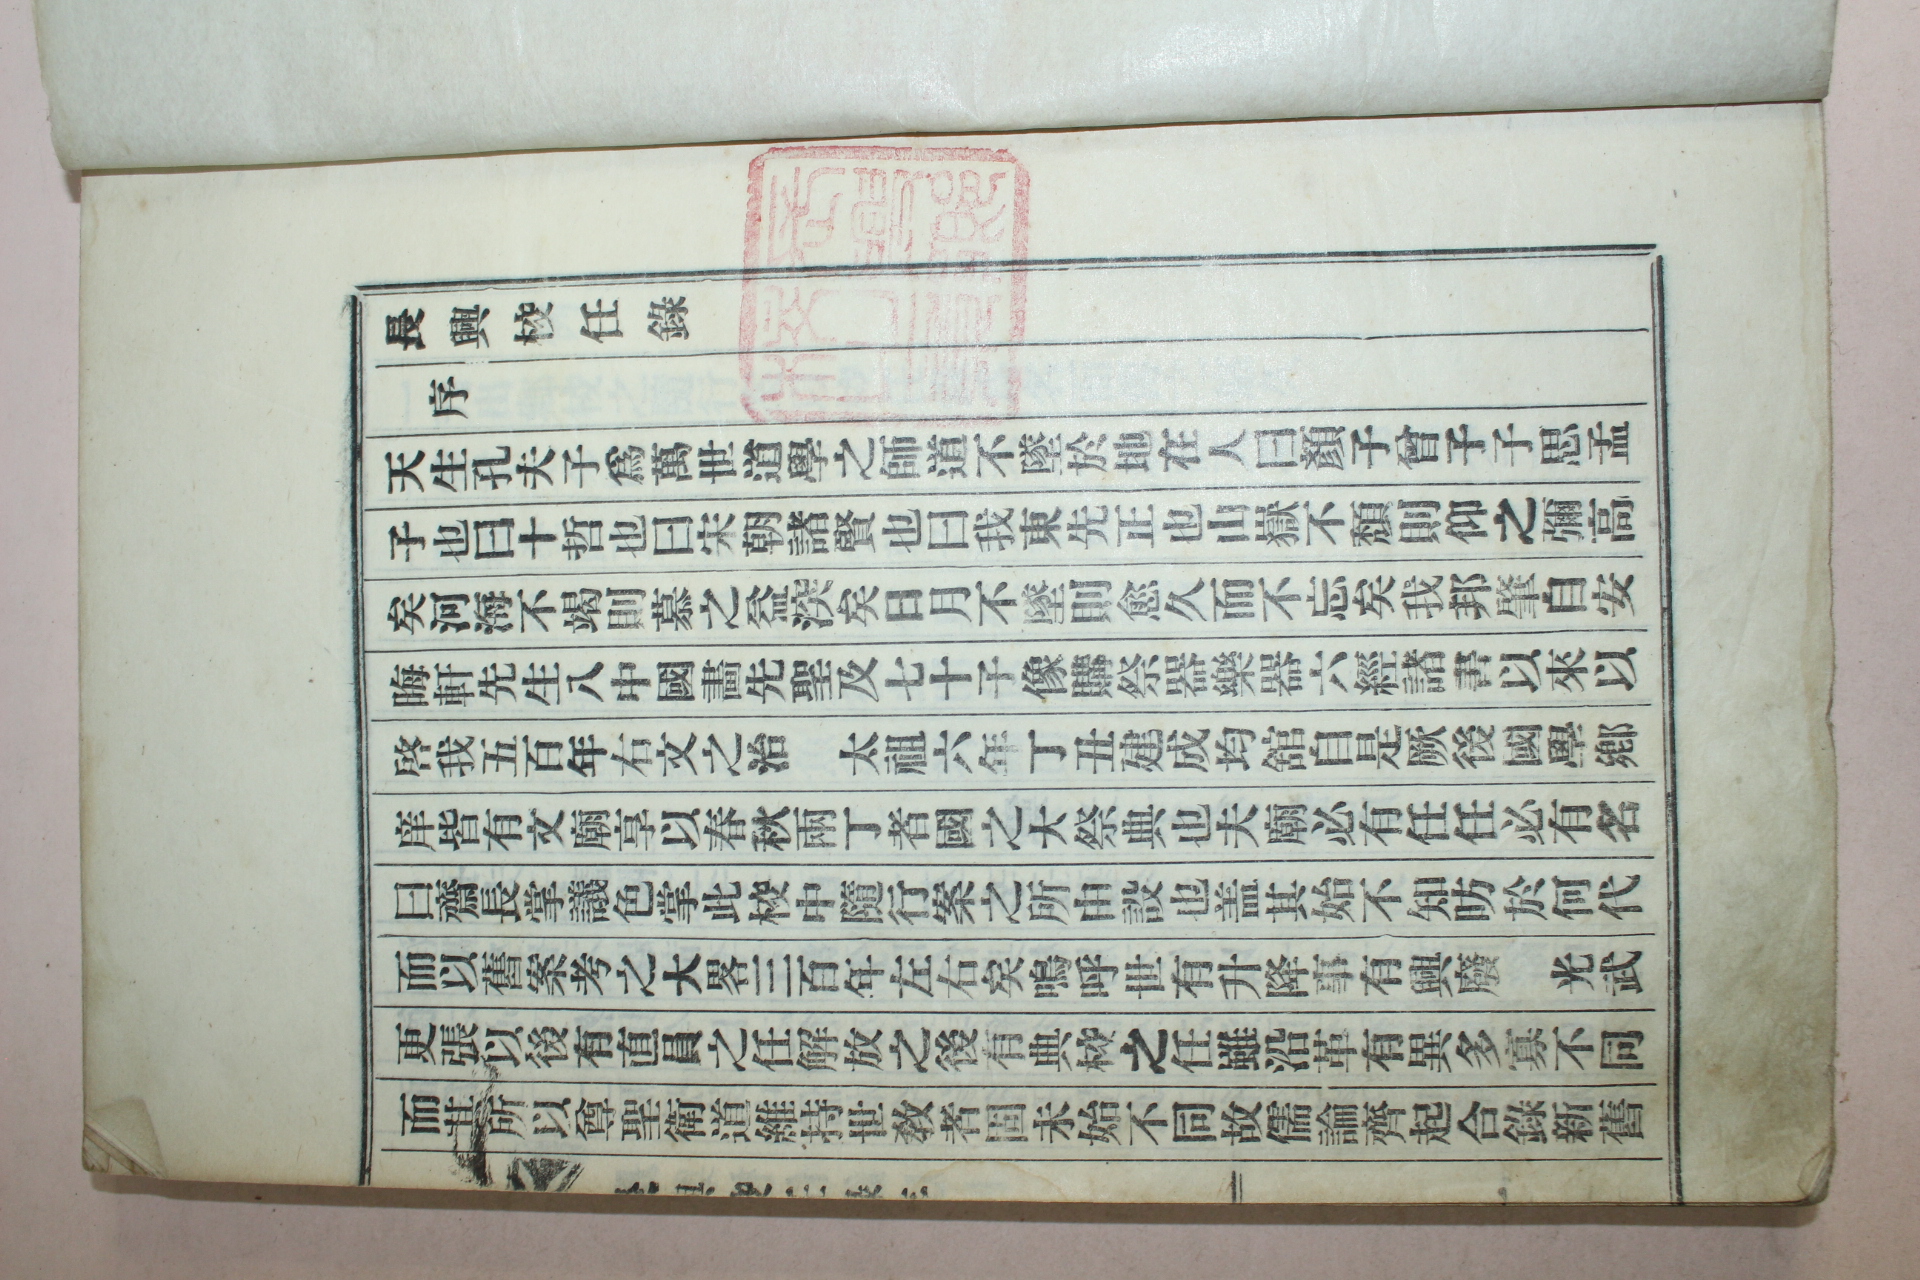 長興校任錄
序
天生孔夫子爲萬世道學之師道不墜於地在人曰顏子曾子子思孟
子也曰十哲也曰宋朝諸賢也曰我東先正也山嶽不頹則仰之彌高
矣河海不竭則慕之益深矣日月不墜則愈久而不忘矣我邦肇自安
晦軒先生入中國畵先聖及七十子像購祭器樂器六經諸書以來以
啓我五百年右文之治 太祖六年丁丑建成均舘自是厥後國學鄉
庠皆有文廟享以春秋兩丁者國之大祭典也夫廟必有任任必有名
曰齋長掌議色掌此校中隨行案之所由設也盖其始不知昉於何代
而以舊案考之大畧三百年左右矣嗚呼世有升降事有興廢 光武
更張以後有直員之任解放之後有典校之任雖沿革有異多寡不同
而其所以尊聖衛道維持世敎者固未始不同故儒論齊起合錄新舊